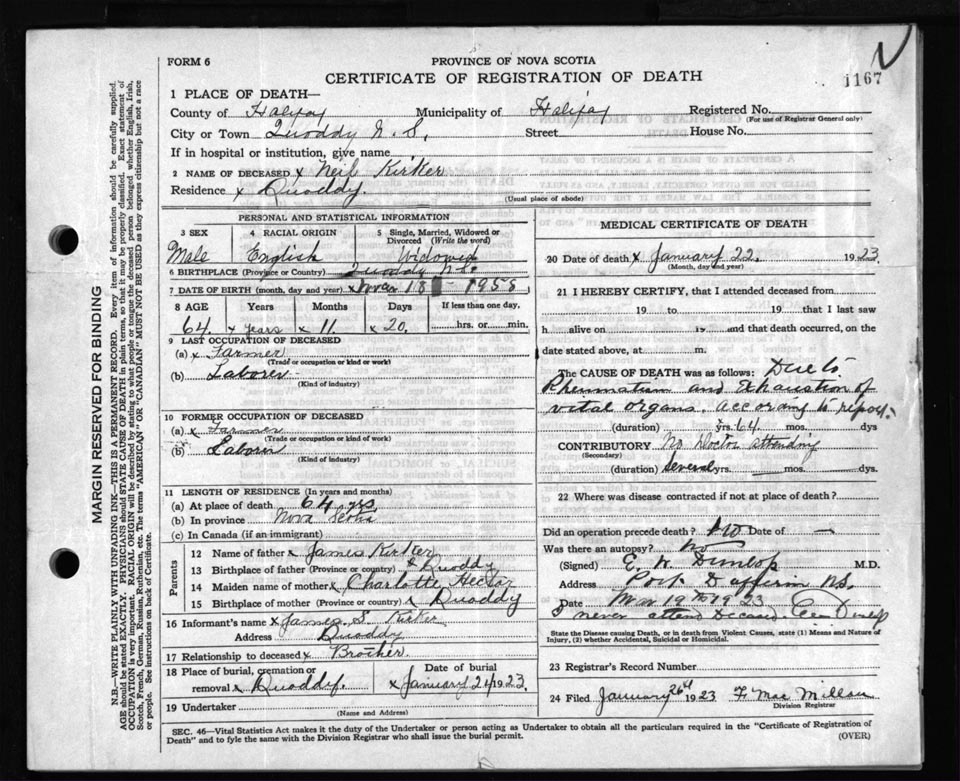 1167
FORM 6
PROVINCE OF NOVA SCOTIA
CERTIFICATE OF REGISTRATION OF DEATH
MARGIN RESERVED FOR BINDING
N.B.—WRITE PLAINLY WITH UNFADING INK—THIS IS A PERMANENT RECORD. Every item of information should be carefully supplied.
AGE should be stated EXACTLY. PHYSICIANS should STATE CAUSE OF DEATH in plain terms, so that it may be properly classified. Exact statement of
OCCUPATION is very important. RACIAL ORIGIN will be described by stating to what people or tongue the deceased person belonged whether English, Irish,
Scotch, French, German, Russian, Ruthenian, etc. The terms "AMERICAN" or "CANADIAN" MUST NOT BE USED as they express citizenship but not a race
or people. See instructions on back of Certificate.
1 PLACE OF DEATH—
County of Halifax Municipality of Halifax Registered No.
(For use of Registrar General only)
City or Town Quoddy N. S. Street House No.
If in hospital or institution, give name
2 NAME OF DECEASED x Neil Kirker
Residence x Quoddy.
(Usual place of abode)
PERSONAL AND STATISTICAL INFORMATION
3 SEX 4 RACIAL ORIGIN 5 Single, Married, Widowed or Divorced (Write the word)
Male English Widowed
6 BIRTHPLACE (Province or Country) Quoddy N.S.
7 DATE OF BIRTH (month, day and year) x 18 - 1958
8 AGE Years Months Days If less than one day,
64 x years x 11 x 20 hrs. or min.
9 LAST OCCUPATION OF DECEASED
(a) x Farmer
(Trade or occupation or kind or work)
(b) Laborer
(Kind of industry)
10 FORMER OCCUPATION OF DECEASED
(a) x Farmer
(Trade or occupation or kind or work)
(b) Laborer
(Kind of industry)
11 LENGTH OF RESIDENCE (In years and months)
(a) At place of death 64 yrs
(b) In province Nova Scotia
(c) In Canada (if an immigrant)
Parents
12 Name of father x James Kirker
13 Birthplace of father (Province or country) x Quoddy
14 Maiden name of mother x Charlotte Hector
15 Birthplace of mother (Province or country) x Quoddy
16 Informant's name x James S. Kirker
Address Quoddy
17 Relationship to deceased x Brother.
18 Place of burial, cremation or removal x Quoddy. Date of burial x January 24 1923.
19 Undertaker
(Name and Address)
MEDICAL CERTIFICATE OF DEATH
20 Date of death x January 22. 1923
(Month, day and year)
21 I HEREBY CERTIFY, that I attended deceased from
19 to 19 that I last saw
h alive on 19 and that death occurred, on the
date stated above, at m.
The CAUSE OF DEATH was as follows: Due to
Rheumatism and Exhaustion of
vital organs. according to report
(duration) yrs. 64 mos. dys
CONTRIBUTORY No Doctor attending
(Secondary)
(duration) Several yrs. mos. dys.
22 Where was disease contracted if not at place of death?
Did an operation precede death? No Date of —
Was there an autopsy? No
(Signed) E. W. Dunlop M.D.
Address Port Dufferin N.S.
Date 19th 1923
I never attend Deceased. Dunlop
State the Disease causing Death, or in death from Violent Causes, state (1) Means and Nature of
Injury, (2) whether Accidental, Suicidal or Homicidal.
23 Registrar's Record Number
24 Filed January 26th 1923 F MacMillan
Division Registrar
SEC. 46—Vital Statistics Act makes it the duty of the Undertaker or person acting as Undertaker to obtain all the particulars required in the "Certificate of Registration of
Death" and to fyle the same with the Division Registrar who shall issue the burial permit. (OVER)